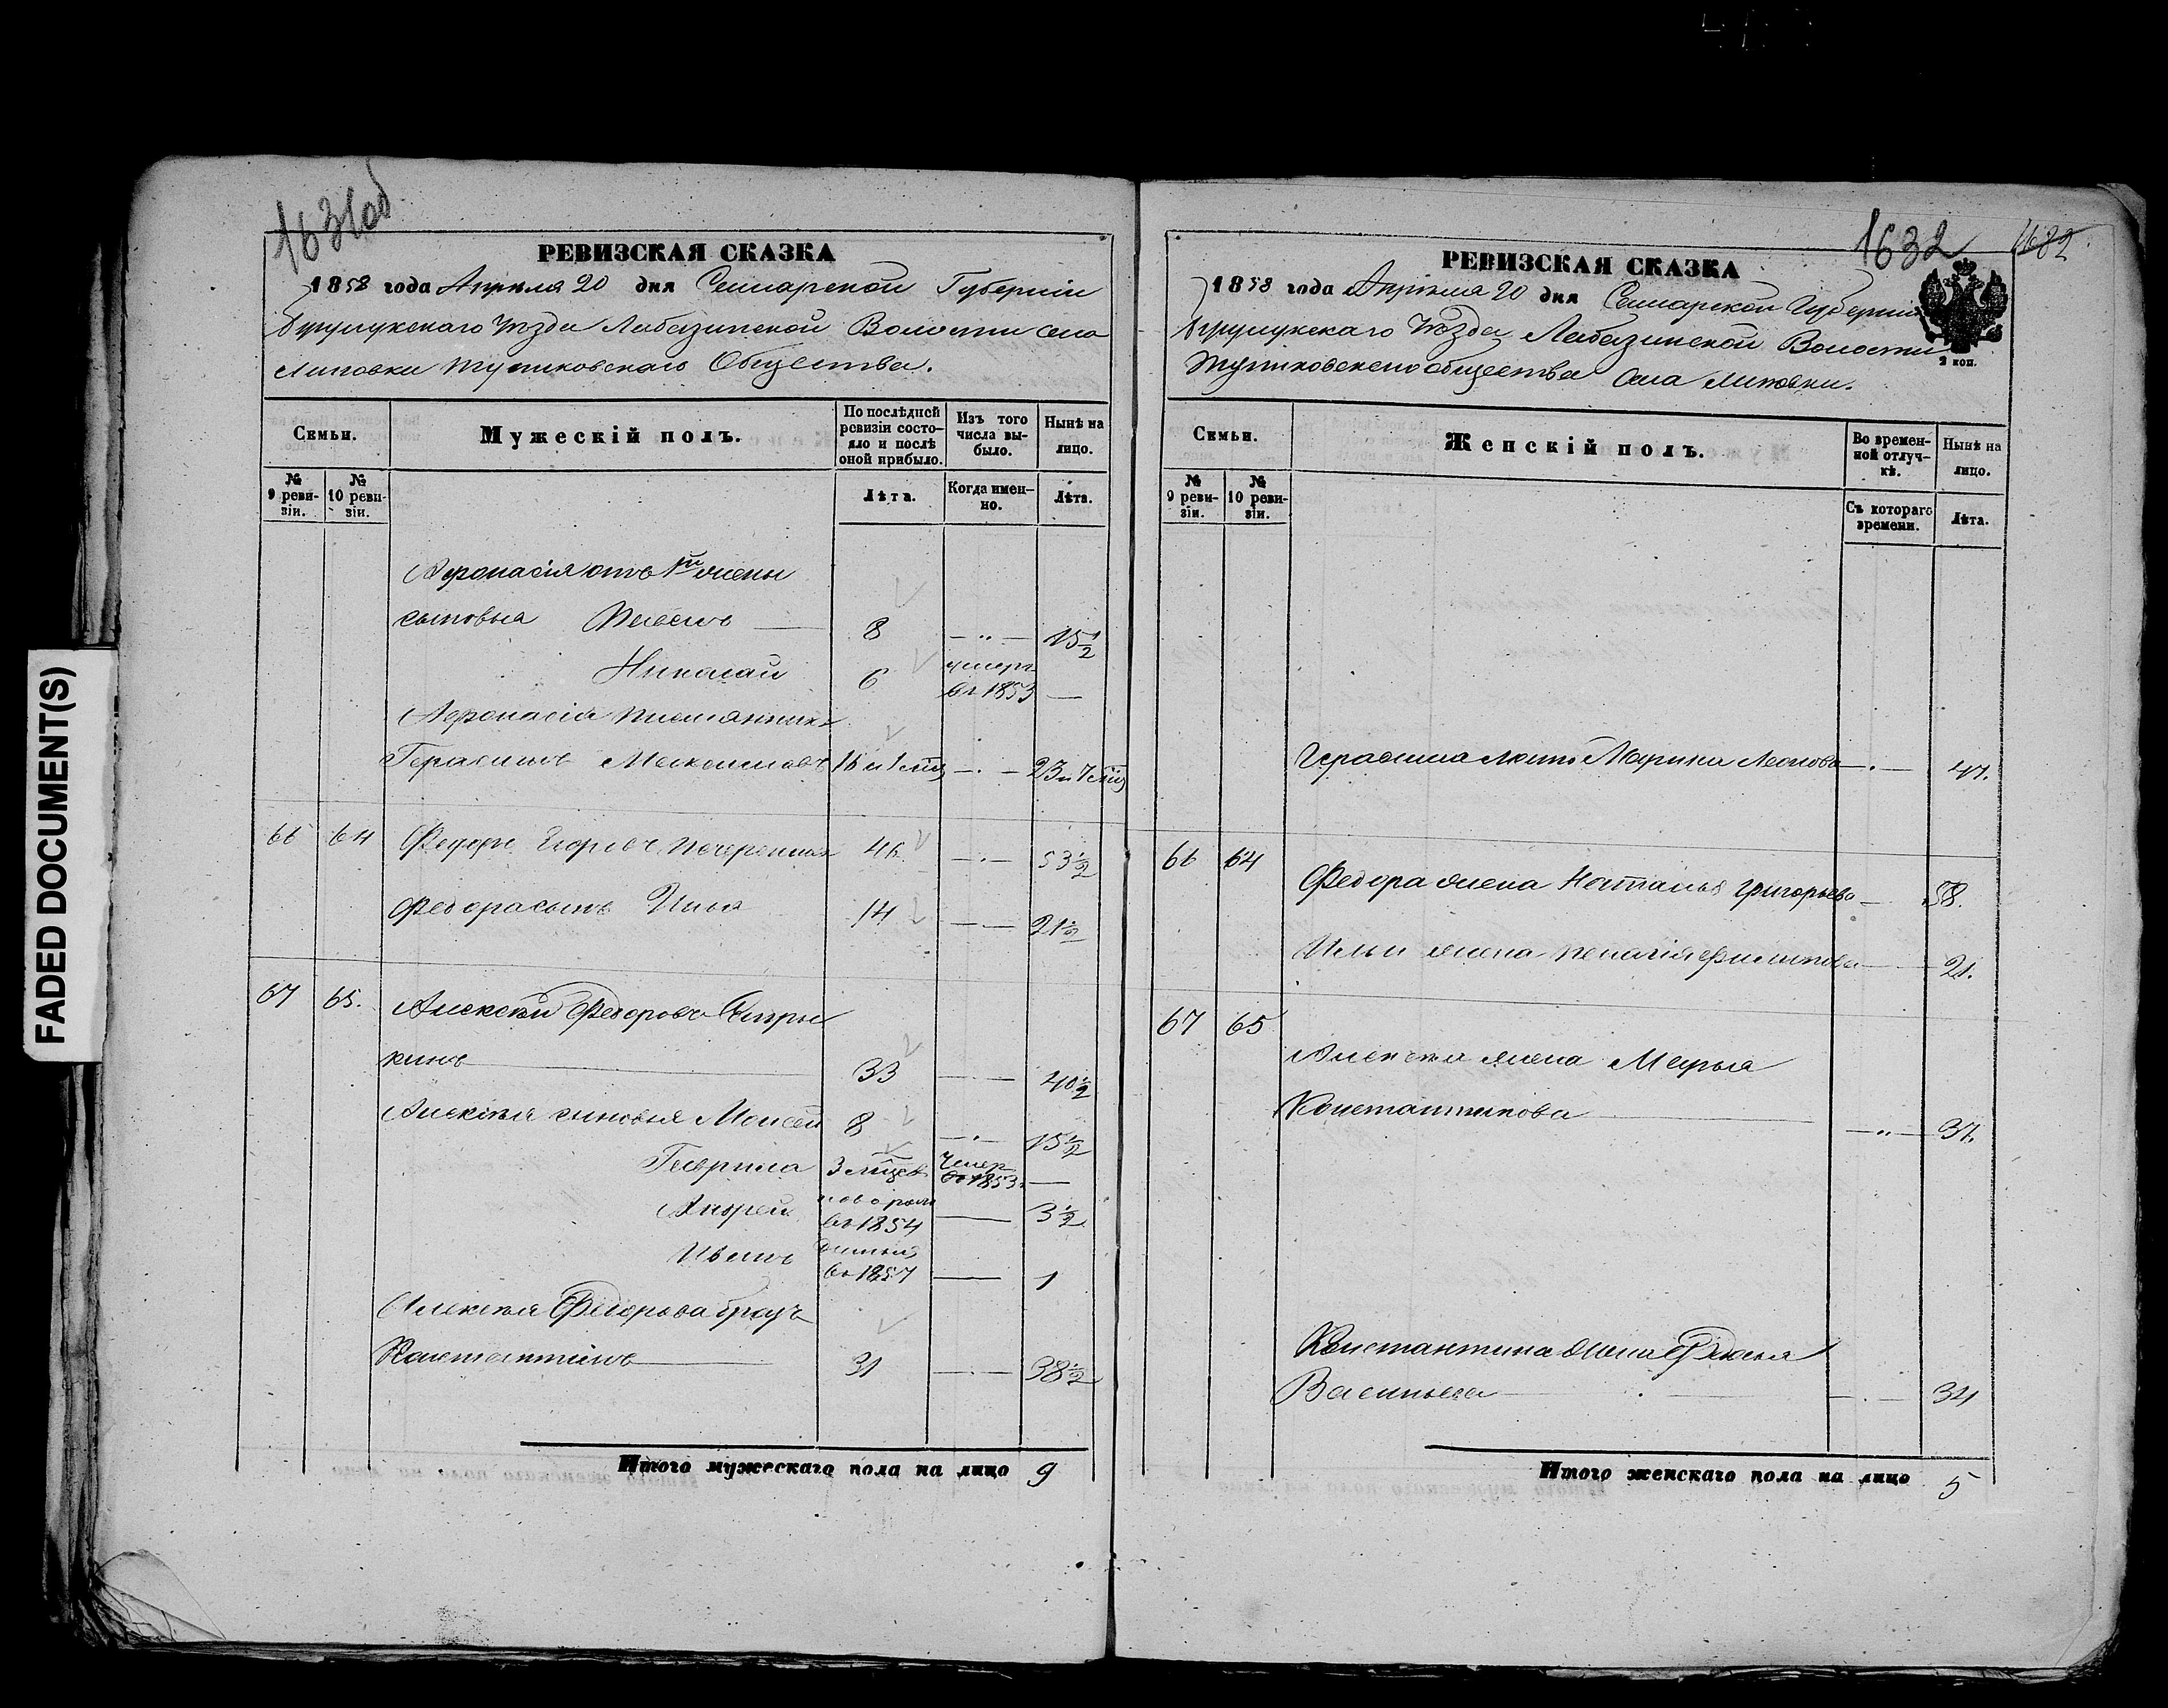 FADED DOCUMENT(S)
1631об
РЕВИЗСКАЯ СКАЗКА
1858 года Апреля 20 дня Самарской Губернiи
Бузулукскаго Уѣзда Лабазинской Волости села
Липовки Тупиковскаго Общества.
Семьи.
Мужескiй полъ.
По послѣдней ревизiи состояло и послѣ оной прибыло.
Изъ того числа выбыло.
Нынѣ на лицо.
№ 9 ревизiи.
№ 10 ревизiи.
Лѣта.
Когда именно.
Лѣта.
Афонасiя отъ 1й жены
сыновья
8 — " — 15 1/2
Николай 6 умеръ въ 1853 —
Афонасiя племянникъ
Герасимъ Максимовъ 16 и 1 мѣц — . — 23 и 7 мѣц
66 64 Федоръ Егоровъ 46 — . — 53 1/2
Федора сынъ Илья 14 — . — 21 1/2
67 65. Алексѣй Федоровъ
кинъ 33 — 40 1/2
Алексѣя сыновья Моисей 8 — . — 15 1/2
Гаврила 3 мѣцев. умер. въ 1853. —
Андрей новорож въ 1854 — 3 1/2
Иванъ въ 1857 — 1
Алексѣя Федорова братъ
Константинъ 31 — . — 38 1/2
Итого мужескаго пола на лицо 9
1632
1682
РЕВИЗСКАЯ СКАЗКА
1858 года Апреля 20 дня Самарской Губернiи
Бузулукскаго Уѣзда Лабазинской Волости
Тупиковскаго общества села Липовки.
2 коп.
Семьи.
Женскiй полъ.
Во временной отлучкѣ.
Нынѣ на лицо.
№ 9 ревизiи.
№ 10 ревизiи.
Съ котораго времени.
Лѣта.
Герасима мать Марина Леонова — . — 47.
66 64 Федора жена Наталья Григорьева — 58.
Ильи жена Пелагiя Филипова — 21.
67 65 Алексѣя жена Марья
Константинова — " — 37.
Константина жена
Васильева — . — 34
Итого женскаго пола на лицо 5